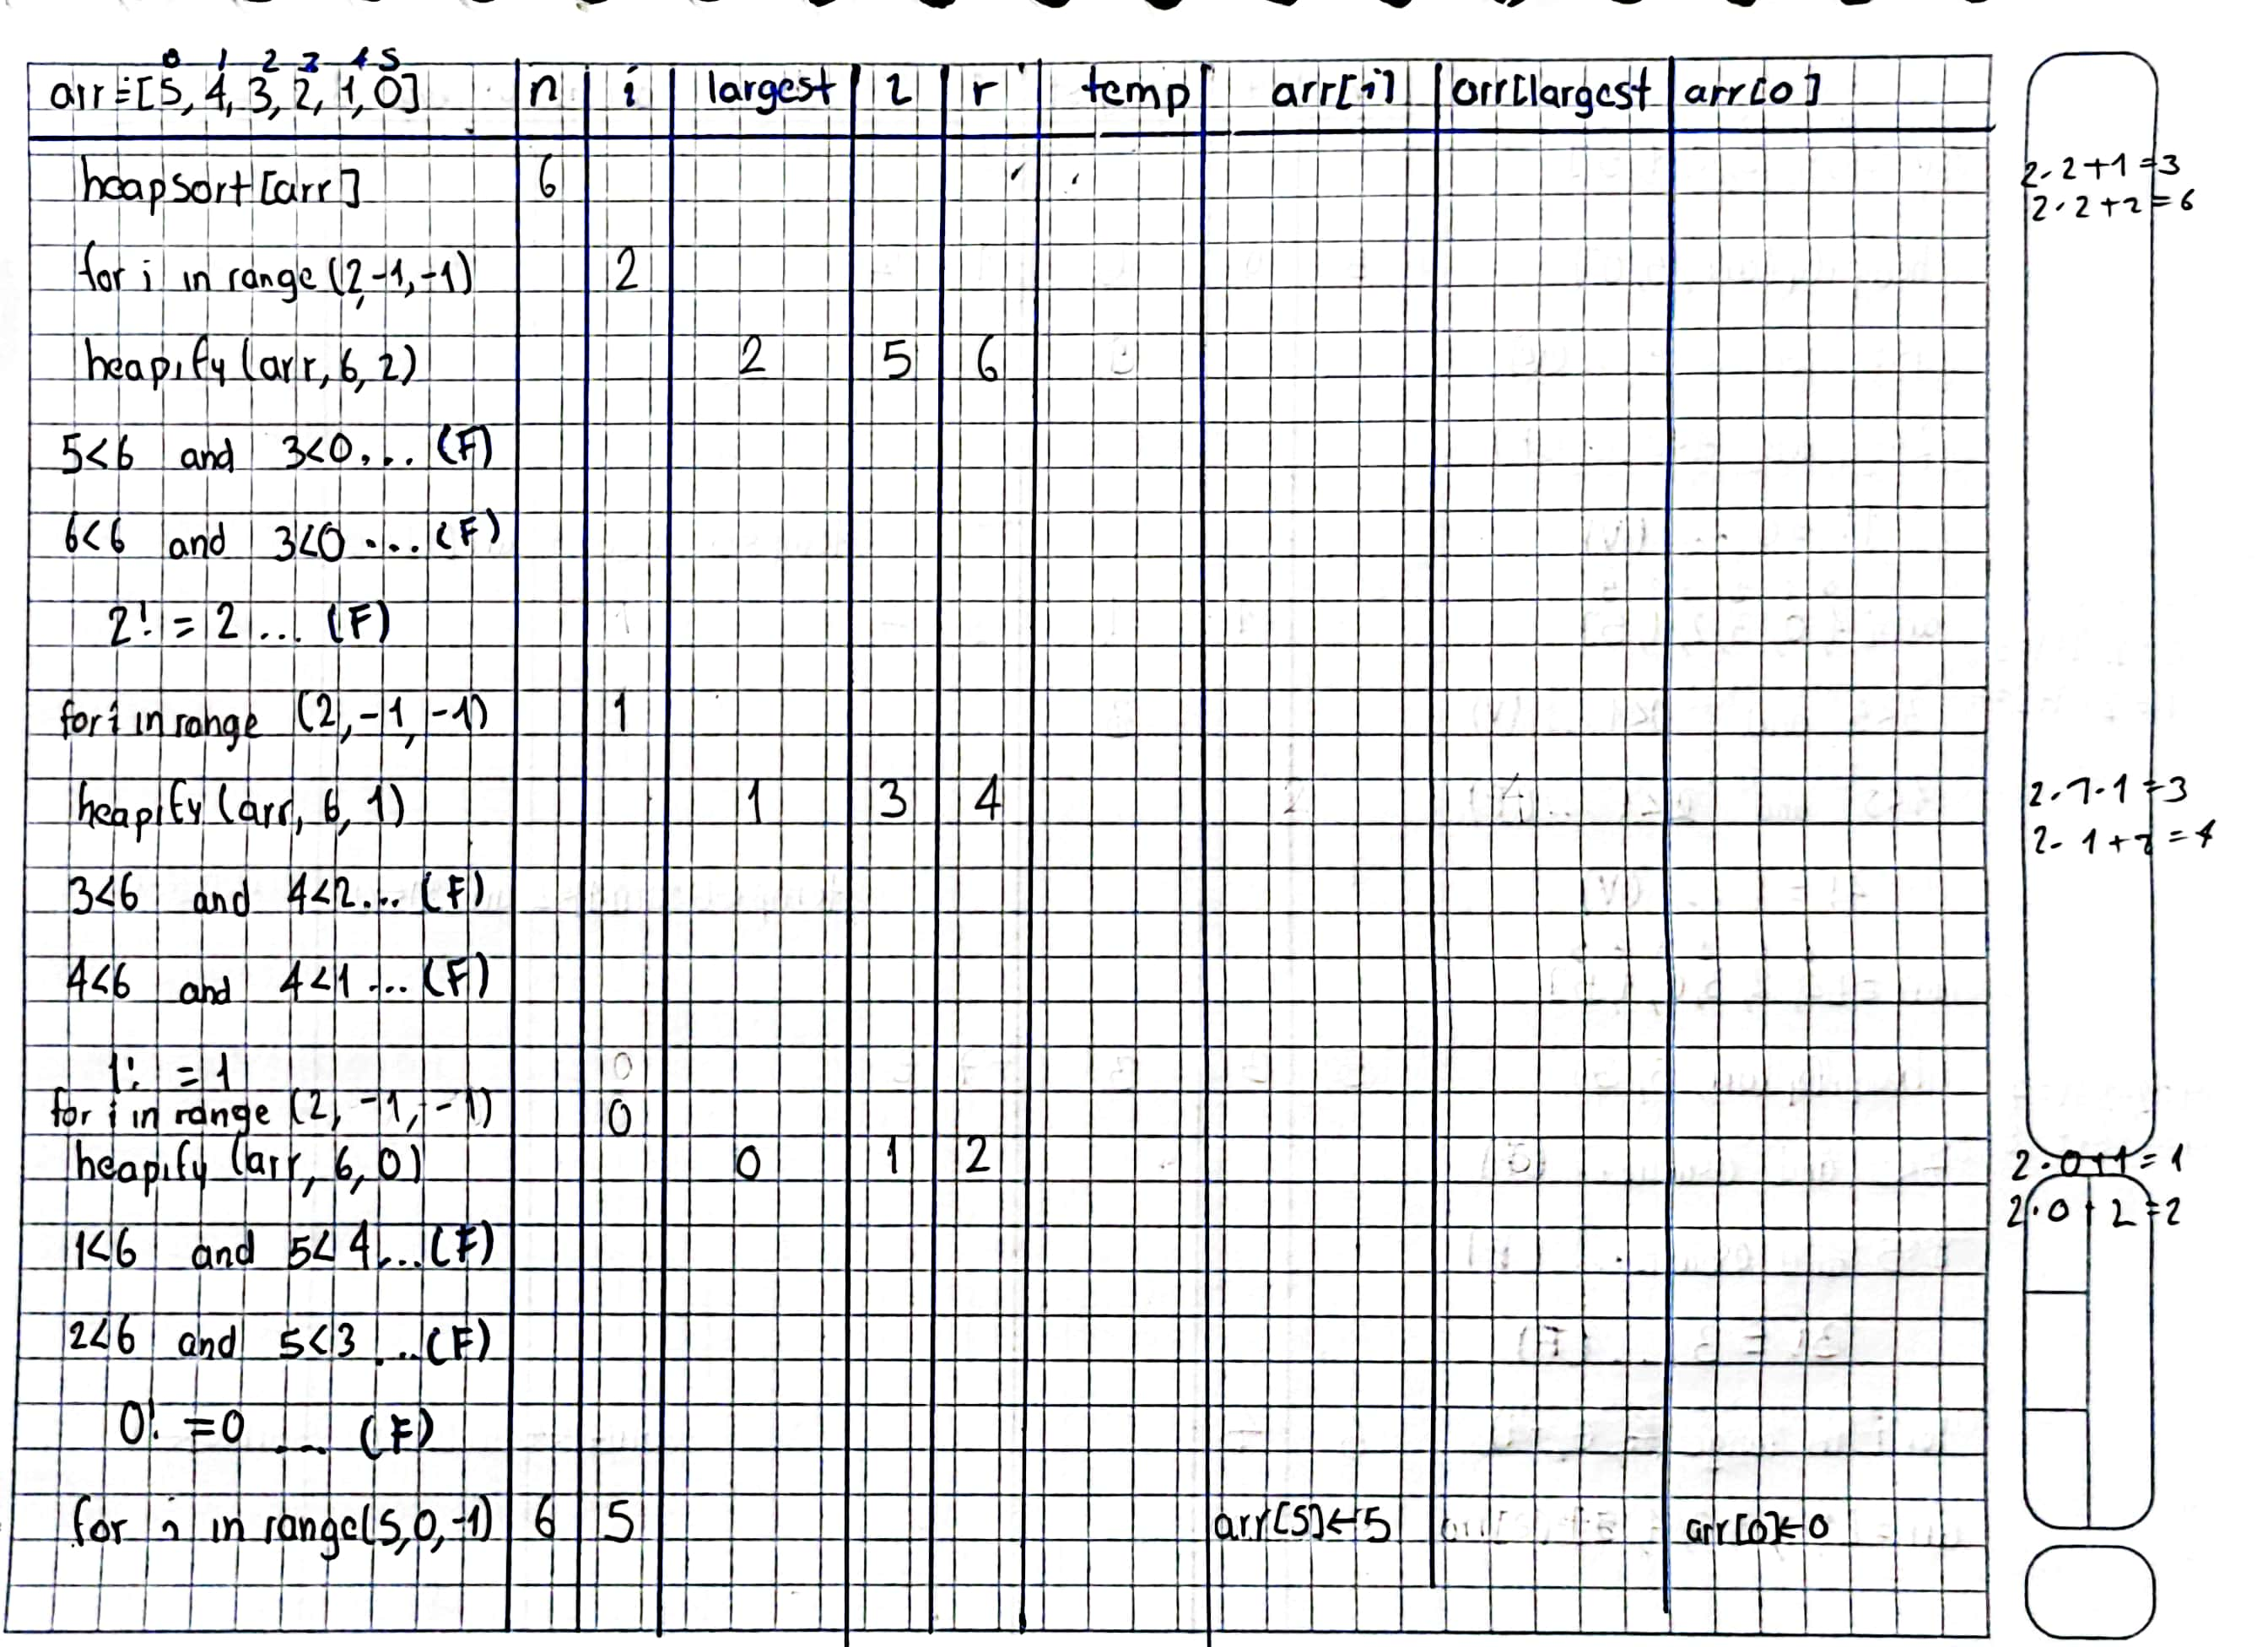 0 1 2 3 4 5
arr=[5, 4, 3, 2, 1, 0] n i largest l r temp arr[i] arr[largest arr[0]
heapsort[arr] 6
2·2+1=3
2·2+2=6
for i in range (2,-1,-1) 2
heapify (arr, 6, 2) 2 5 6
5<6 and 3<0... (F)
6<6 and 3<0 ... (F)
2! = 2 ... (F)
for i in range (2, -1, -1) 1
heapify (arr, 6, 1) 1 3 4
2·1·1=3
2·1+2=4
3<6 and 4<2... (F)
4<6 and 4<1 ... (F)
1! = 1 0
for i in range (2, -1, -1) 0
heapify (arr, 6, 0) 0 1 2
2·0+1=1
2·0+2=2
1<6 and 5<4...(F)
2<6 and 5<3 ...(F)
0! =0 ... (F)
for i in range(5,0,-1) 6 5 arr[5]←5 arr[0]←0